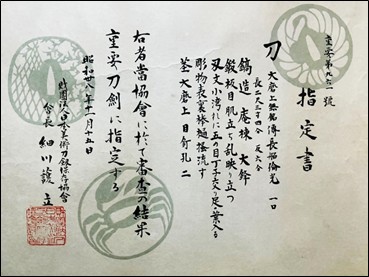 指定書
刀 大磨上無銘傳長船倫光 一口
長二尺三寸四分 反六分
鎬造 庵棟 大鋒
鍛板目肌立ち乱映り立つ
刃文小湾れに五の目丁子交り足葉入る
彫物表裏棒樋掻流す
茎大磨上 目釘孔二
右者當協會に於て審査の結果
重要刀劍に指定する
昭和卅八年十一月十五日
財團法人日本美術刀劍保存協會
會長 細川護立